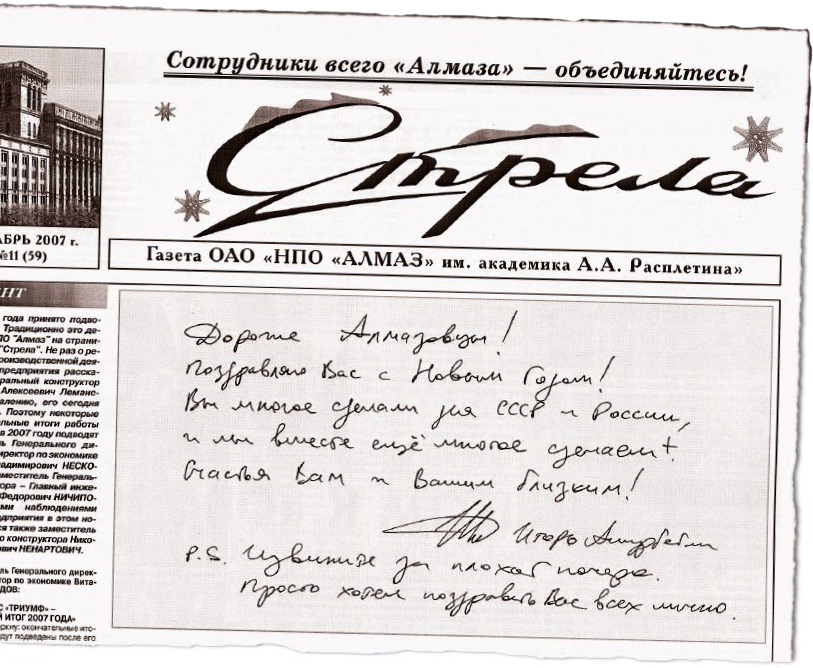 Сотрудники всего «Алмаза» — объединяйтесь!
Стрела
АБРЬ 2007 г.
№11 (59)
Газета ОАО «НПО «АЛМАЗ» им. академика А.А. Расплетина»
НТ
года принято подво-
Традиционно это де-
ПО "Алмаз" на страни-
"Стрела". Не раз о ре-
роизводственной дея-
предприятия расска-
ральный конструктор
Алексеевич Леманс-
жалению, его сегодня
. Поэтому некоторые
ельные итоги работы
в 2007 году подводят
ь Генерального ди-
иректор по экономике
адимирович НЕСКО-
аместитель Генераль-
ора – Главный инже-
Федорович НИЧИПО-
ми наблюдениями
дприятия в этом но-
ся также заместитель
о конструктора Нико-
ович НЕНАРТОВИЧ.
ль Генерального дирек-
тор по экономике Вита-
ДОВ:
С «ТРИУМФ» –
Й ИТОГ 2007 ГОДА»
ркну: окончательные ито-
дут подведены после его
Дорогие Алмазовцы!
Поздравляю Вас с Новым Годом!
Вы многое сделали для СССР и России,
и мы вместе ещё многое сделаем.
Счастья Вам и Вашим близким!
Игорь Ашурбейли
P.S. Извините за плохой почерк.
Просто хотел поздравить Вас всех лично.